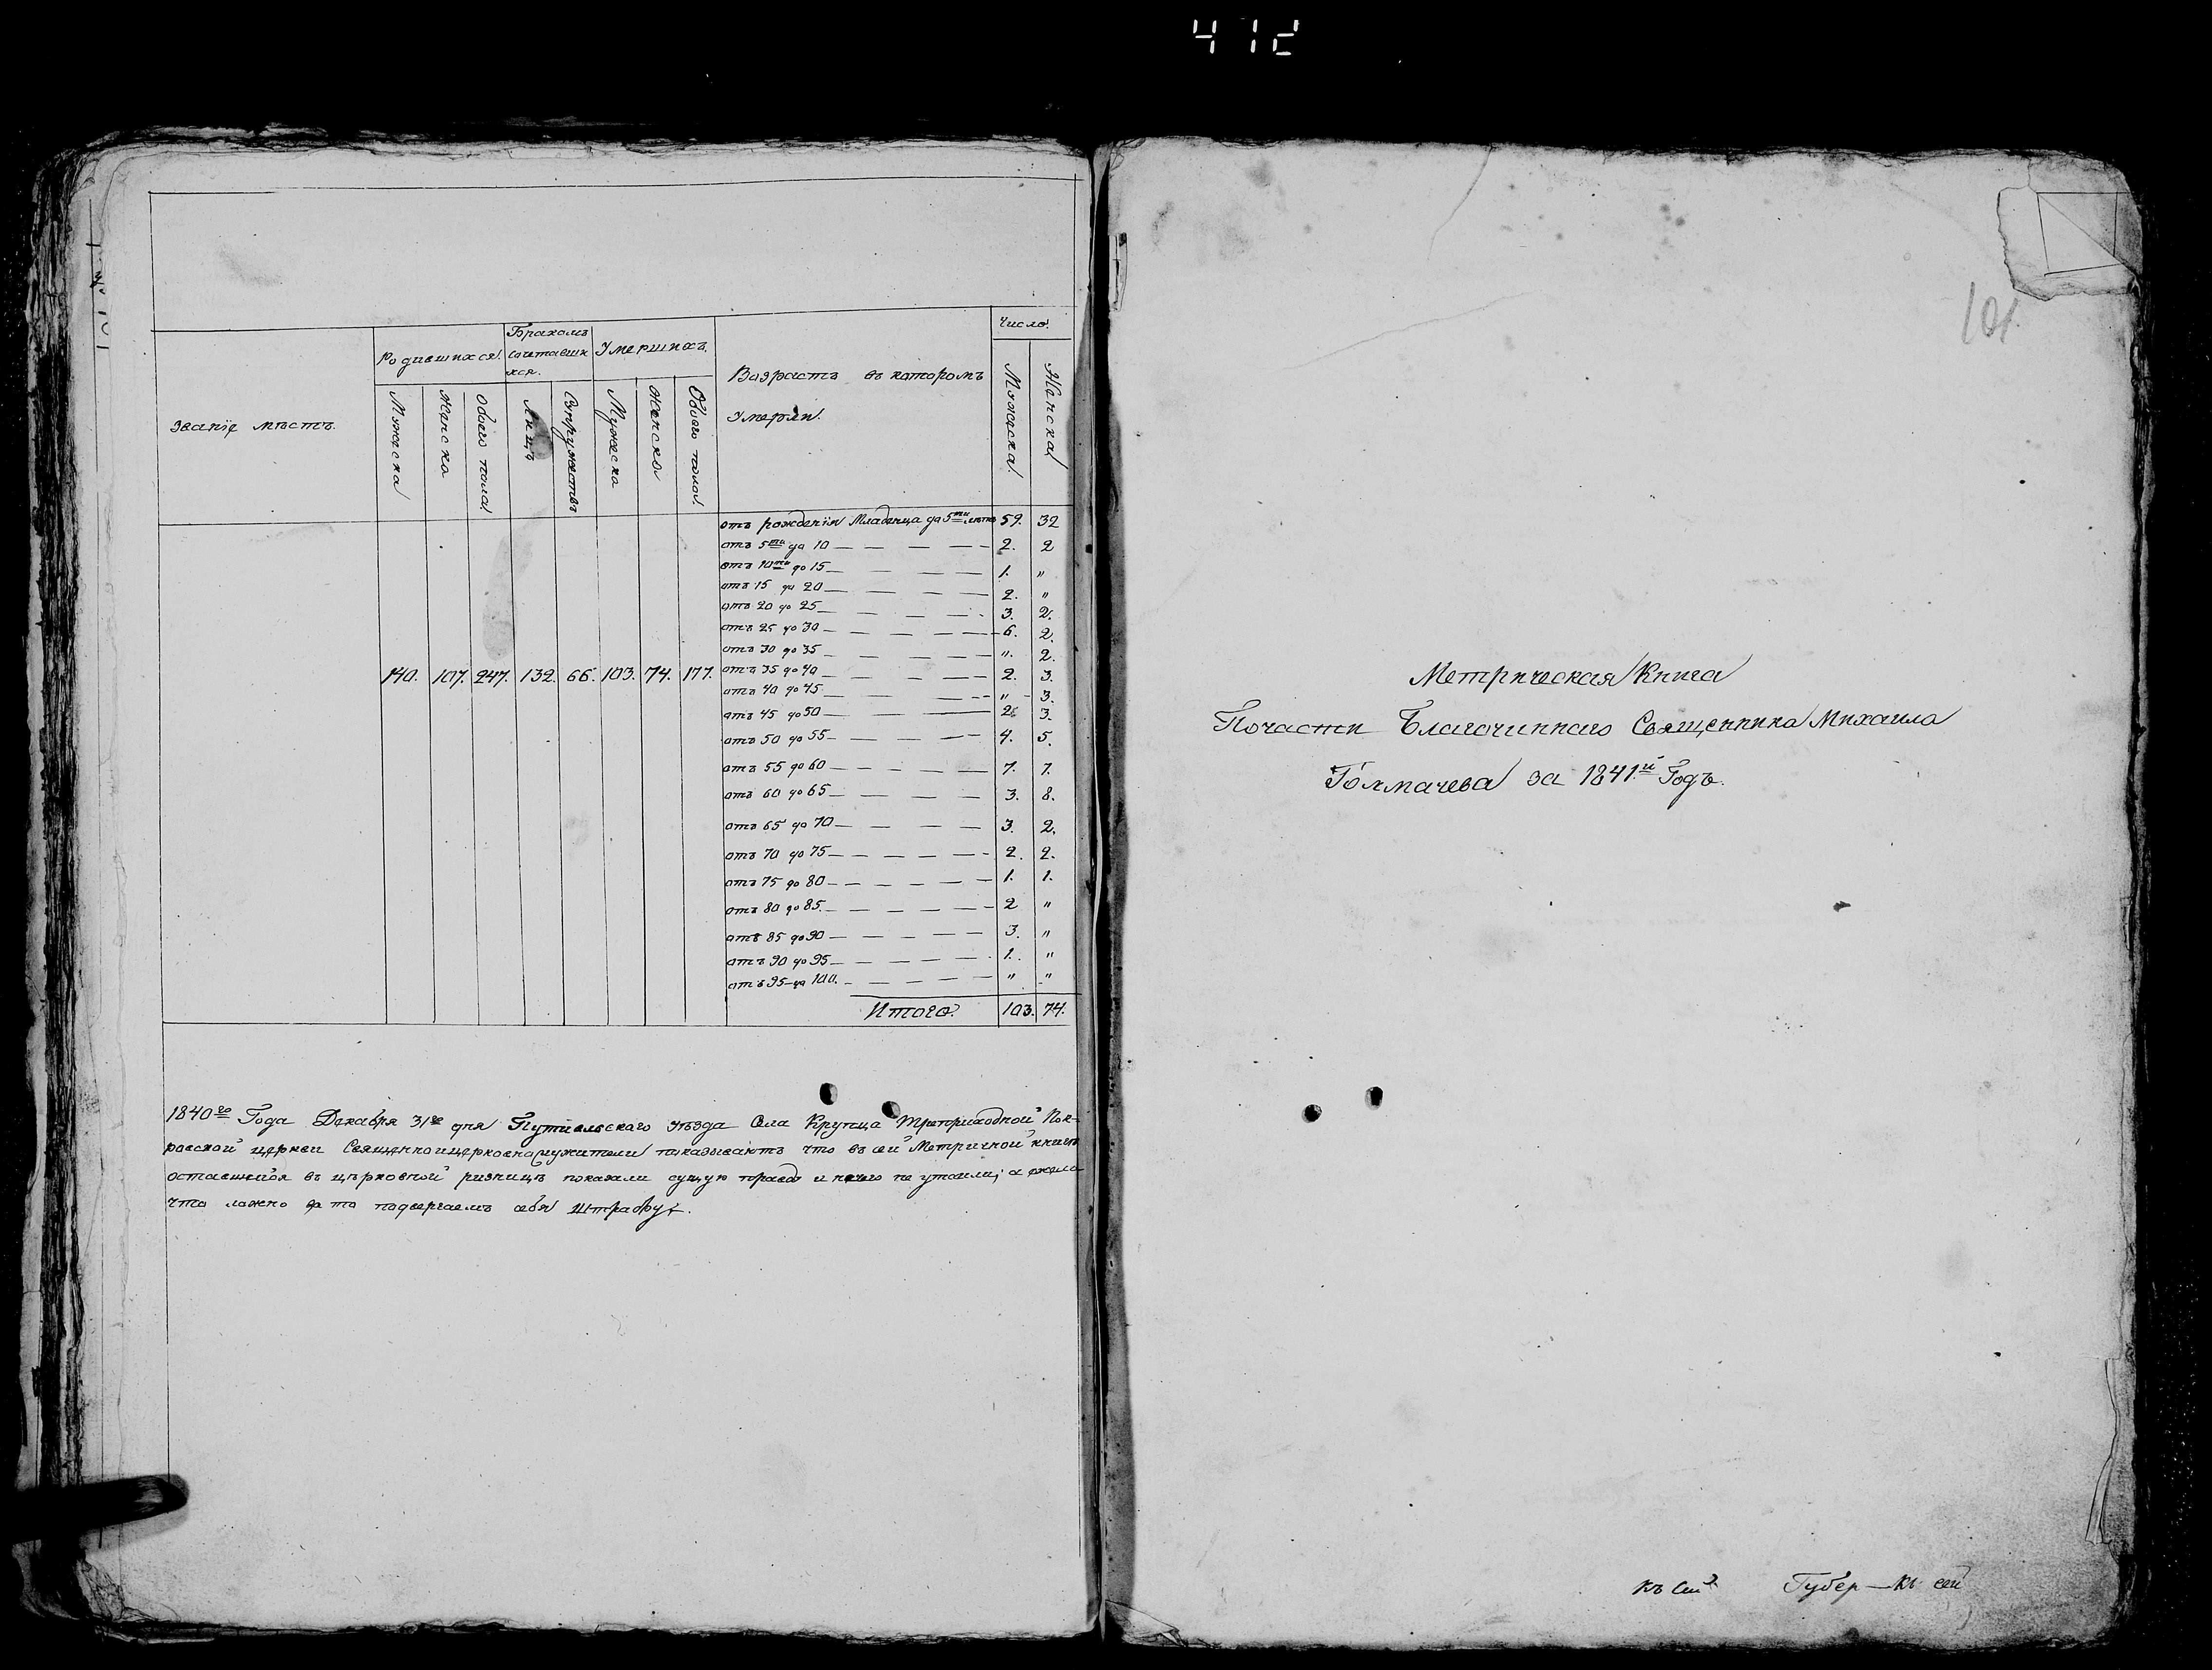 412
Число.
Родившихся. Бракомъ сочетавши хся. Умершихъ.
Званіе мѣстъ. Возрастъ въ которомъ Умерли.
Мужеска Женска Обоего пола. Лицъ Супружествъ Мужеска Женска Обоего пола. Мужеска. Женска
отъ рожденія Младенца до 5ти лѣтъ 59. 32
отъ 5ти до 10 — — — — 2. 2
отъ 10ти до 15 — — — — 1. "
отъ 15 до 20 — — — — 2. "
отъ 20 до 25 — — — — 3. 2.
отъ 25 до 30 — — — — 6. 2.
отъ 30 до 35 — — — — ". 2.
140. 107. 247. 132. 66. 103. 74. 177. отъ 35 до 40 — — — — 2. 3.
отъ 40 до 45 — — — — " 3.
отъ 45 до 50 — — — 2 3.
отъ 50 до 55 — — — — 4. 5.
отъ 55 до 60 — — — — 7. 7.
отъ 60 до 65 — — — — 3. 8.
отъ 65 до 70 — — — — 3. 2.
отъ 70 до 75 — — — — 2. 2.
отъ 75 до 80 — — — — 1. 1.
отъ 80 до 85. — — — — 2 "
отъ 85 до 90 — — — — 3. "
отъ 90 до 95 — — — — 1. "
отъ 95 до 100. — — — — " "
Итого. 103. 74.
1840го Года Декабря 31го дня Путивльскаго уѣзда Села Крупца Трехприходной Пок-
ровской церкви Священноцерковнослужители показываютъ что въ сей Метричной книгѣ
оставшейся въ церковной ризницѣ показали сущую правду и ничего не утаили; а ежели
что ложно за то подвергаемъ себя штрафу.
101.
Метрическая Книга
Почасти Благочиннаго Священника Михаила
Толмачева за 1841й Годъ.
Къ Сей Губер — Къ сей